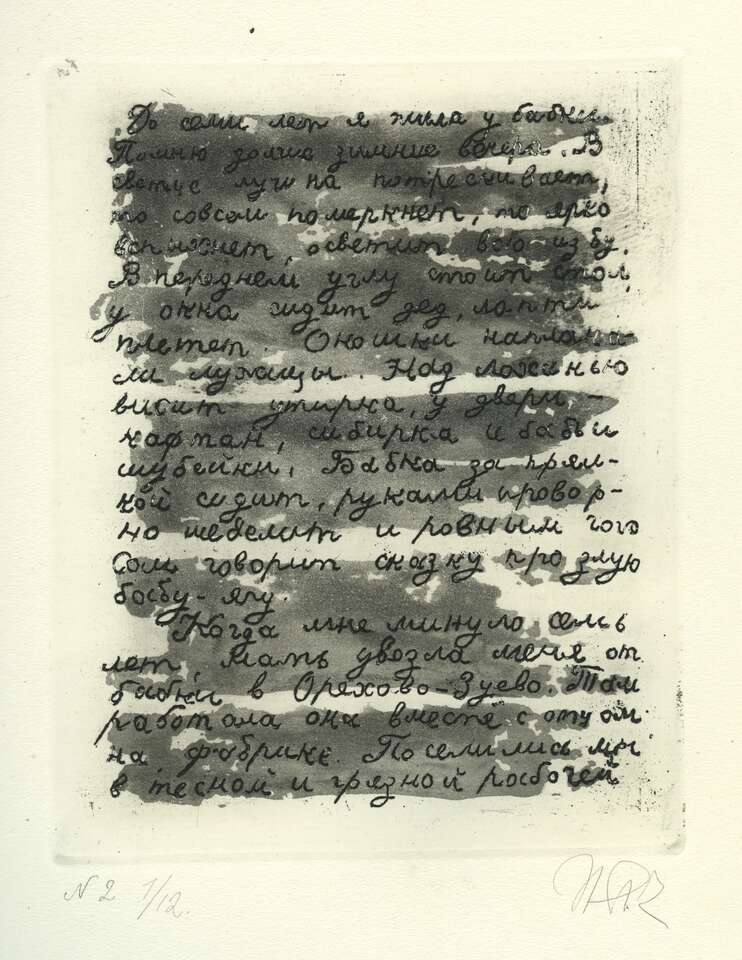 До семи лет я жила у бабки.
Помню долгие зимние вечера. В
светце лучина потрескивает,
то совсем померкнет, то ярко
вспыхнет, осветит всю избу.
В переднем углу стоит стол,
у окна сидит дед, лапти
плетет. Окошки наплака-
ли лужицы. Над лоханью
висит утирка, у двери, -
кафтан, сибирка и бабьи
шубейки. Бабка за прял-
кой сидит, руками провор-
но шевелит и ровным голо
сом говорит сказку про злую
бабу-ягу.
Когда мне минуло семь
лет, мать увезла меня от
бабки в Орехово-Зуево. Там
работала она вместе с отцом
на фабрике. Поселились мы
в тесной и грязной рабочей
N 2 1/12.